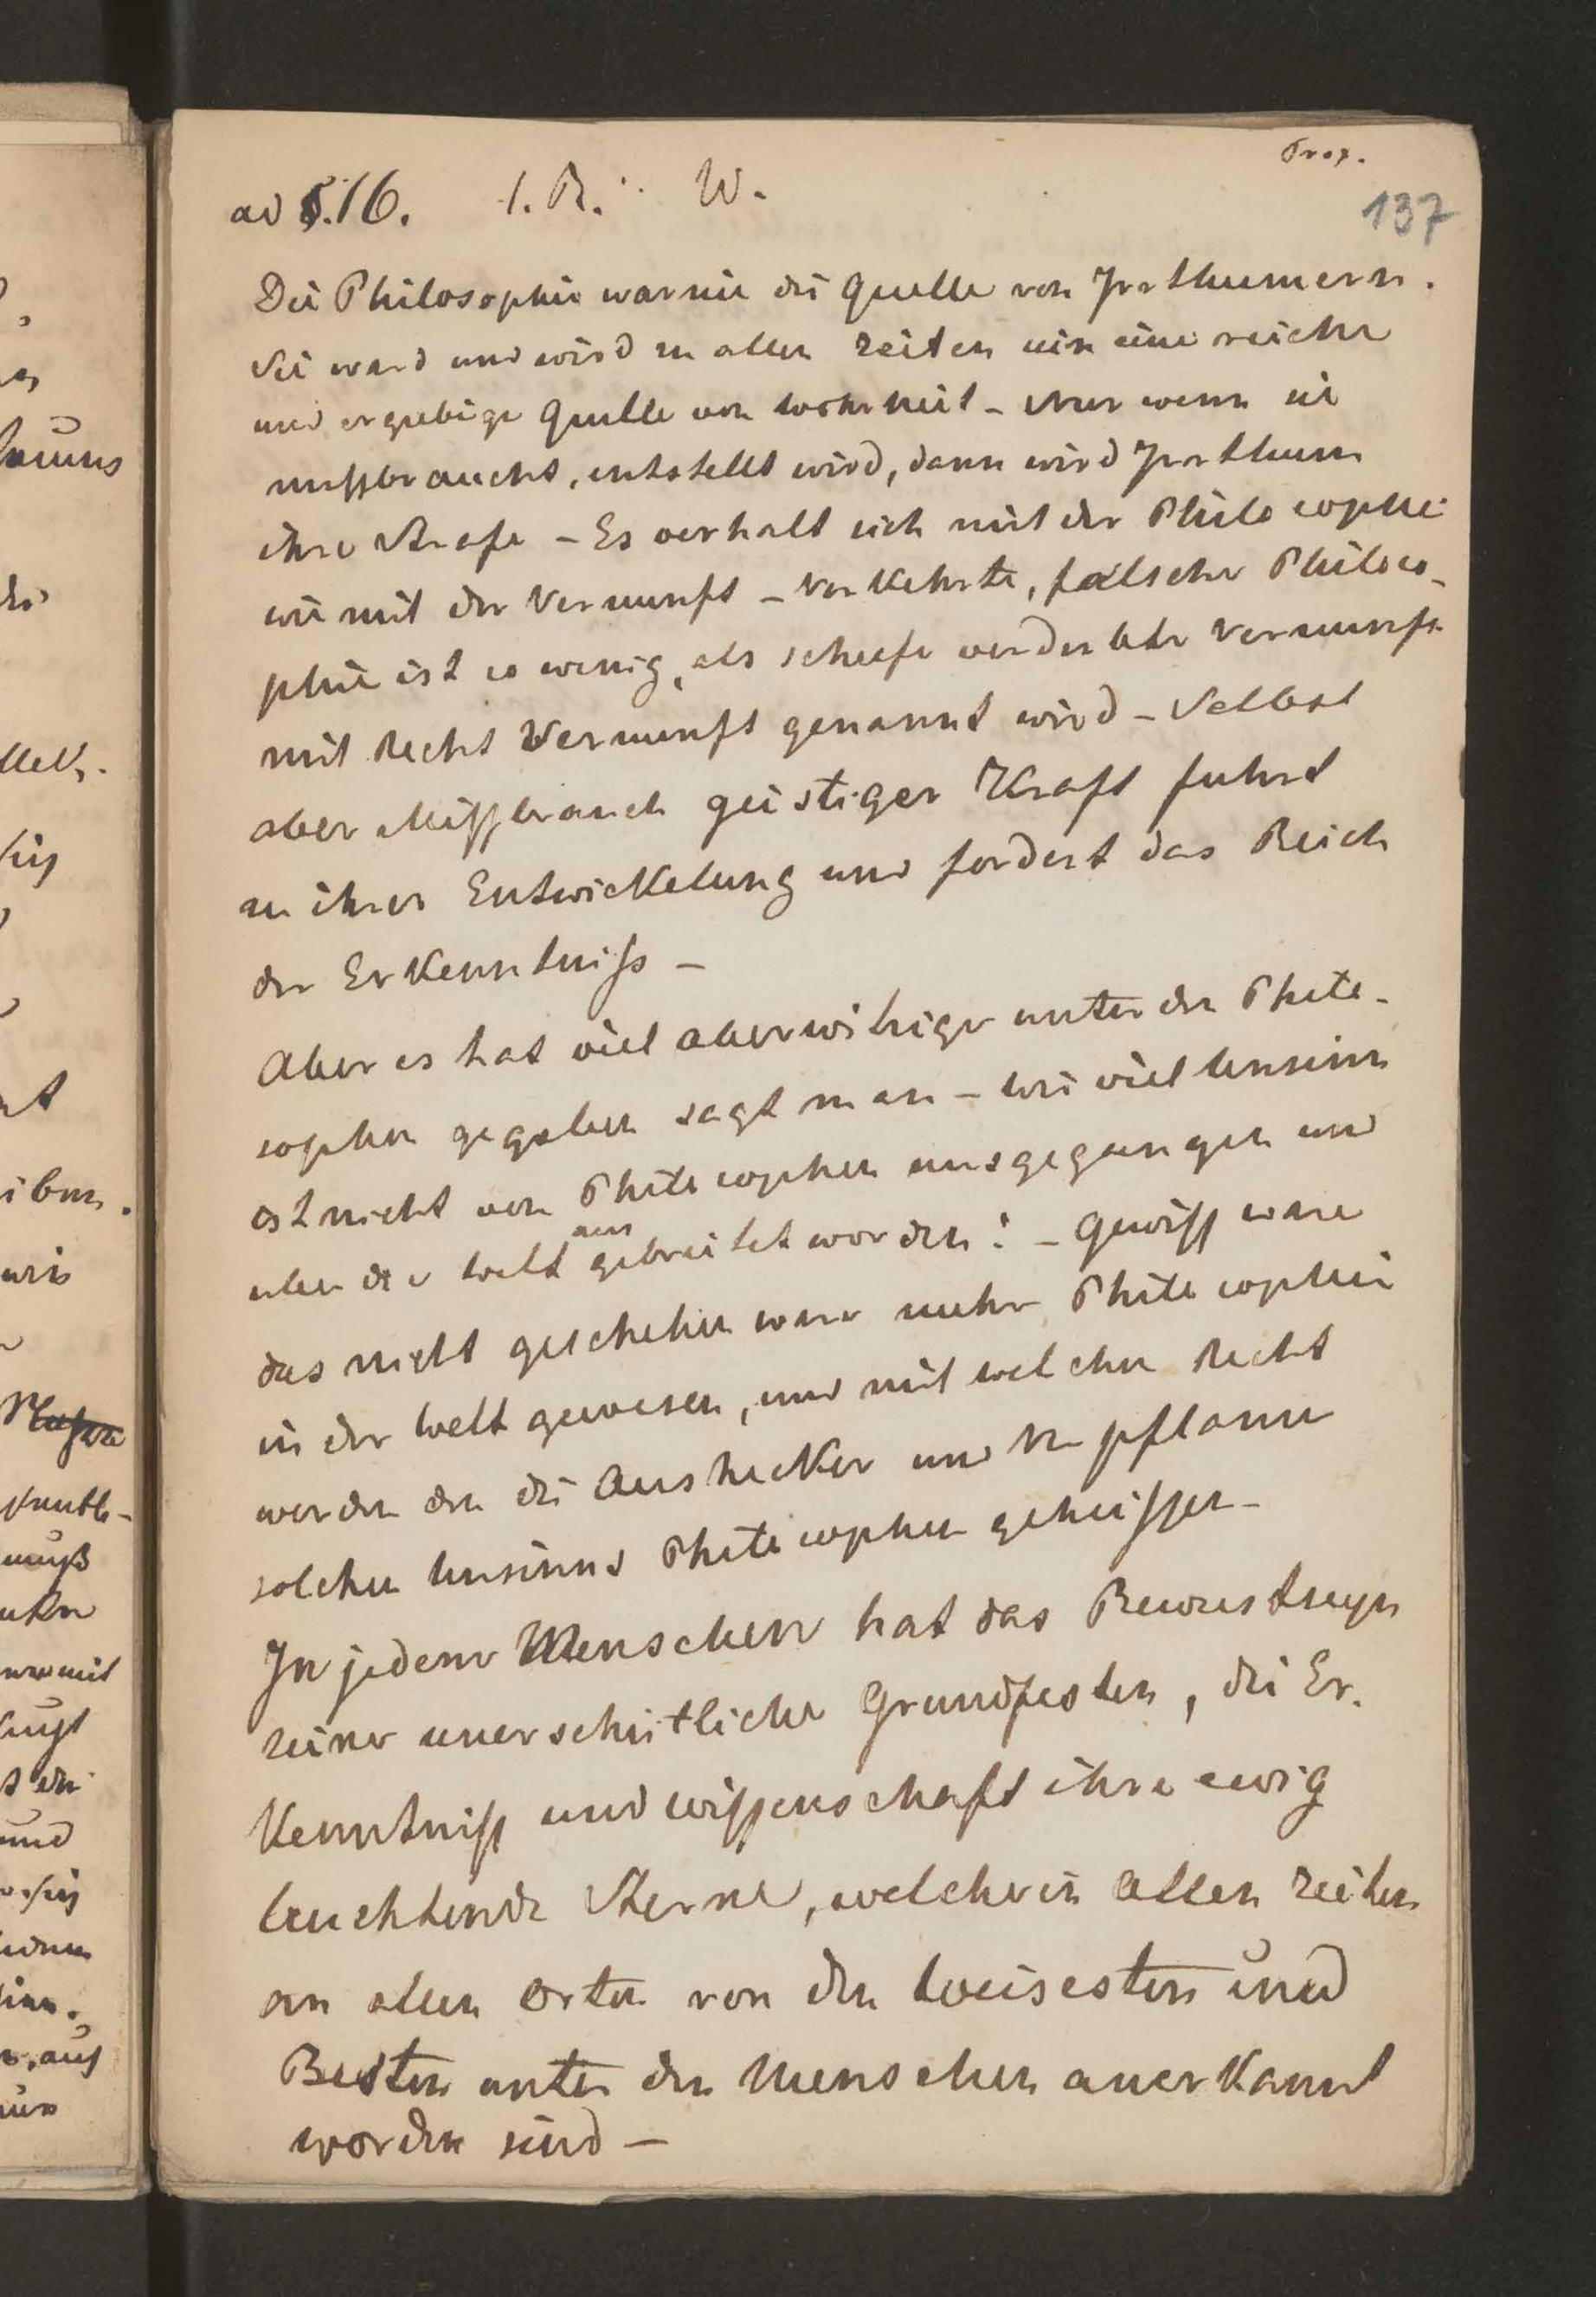 Trox.
137
ad S.16. 1. R. W.
Die Philosophie war nie die Quelle von Irrthumern.
Sie ward und wird zu allen Zeiten sein eine reiche
und ergiebige Quelle von Wahrheit – Nur wenn sie
missbraucht, entstellt wird, dann wird Irrthum
ihre Strafe – Es verhalt sich mit der Philosophie
wie mit der Vernunft – Verkehrte, falsche Philoso-
phie ist so wenig, als schiefe verderbte Vernunft
mit Recht Vernunft genannt wird – Selbst
aber Missbrauch geistiger Kraft fuhrt
zu ihrer Entwickelung und fordert das Reich
der Erkenntniss –
Aber es hat viel aberwitzige unter den Philo-
sophen gegeben sagt man – wie viel Unsinn
ist nicht von Philosophen ausgegangen und
uber die Welt ausgebreitet worden! – Gewiss ware
das nicht geschehen ware mehr Philosophie
in der Welt gewesen, und mit welchem Recht
werden den die Aushecker und Verpflanzer
solchen Unsinns Philosophen geheissen –
In jedem Menschen hat das Bewustseyn
seine unerschütliche Grundfesten, die Er-
kenntniss und Wissenschaft ihre ewig
leuchtende Sterne, welche in allen Zeiten
an allen Orten von den Weisesten und
Besten unter den Menschen anerkannt
worden sind –